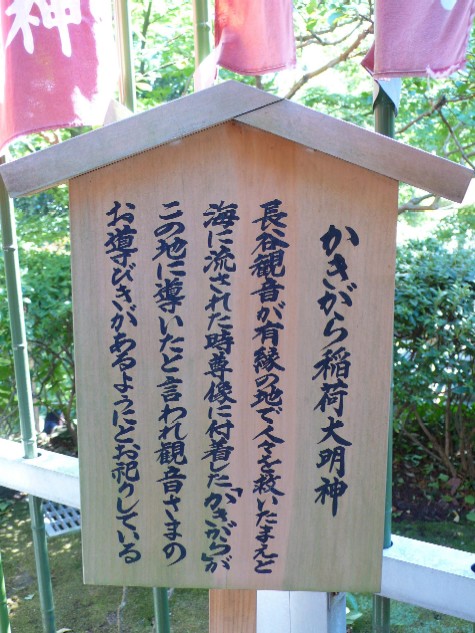 神
かきがら稲荷大明神
長谷観音が有縁の地で人々を救いたまえと
海に流された時尊像に付着した「かきがら」が
この地に導いたと言われ観音さまの
お導びきがあるようにとお祀りしている